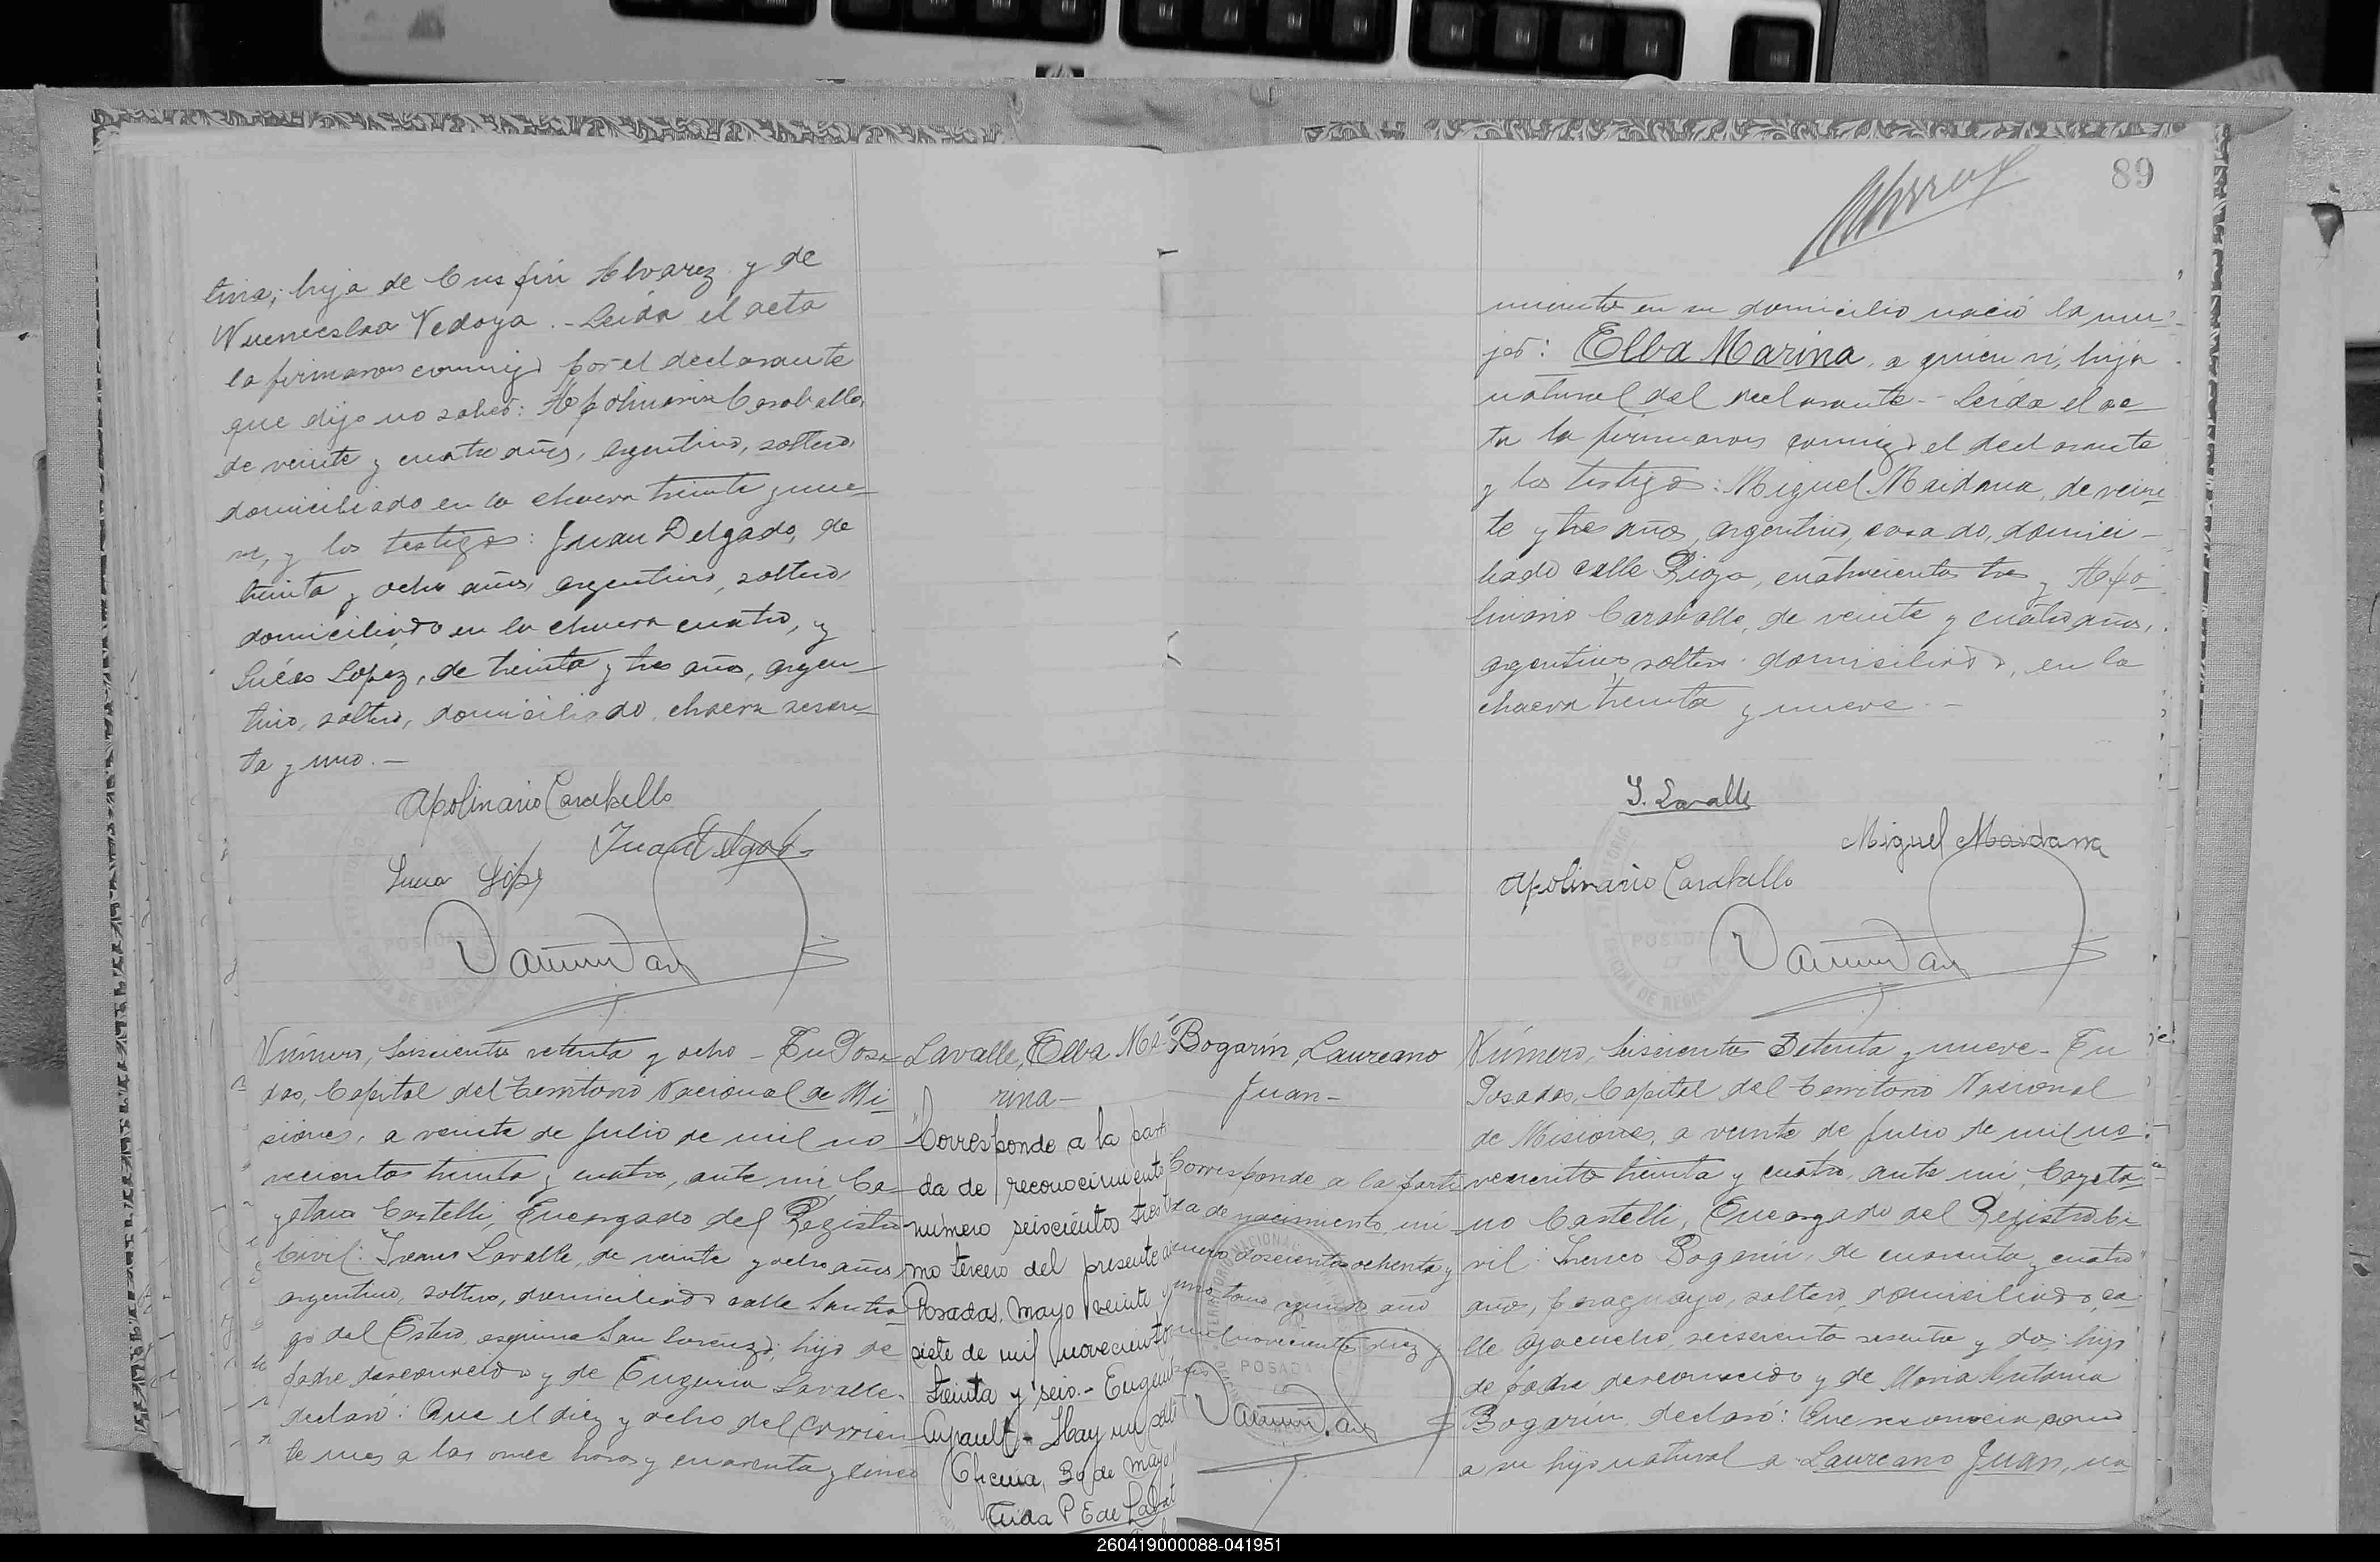 tina; hija de Crispin Alvarez y de
Wuenceslaa Vedoya. - Leída el acta
la firmaron conmigo por el declarante
que dijo no saber: Apolinario Caraballo,
de veinte y cuatro años, argentino, soltero,
domiciliado en la chacra treinta y nue-
ve, y los testigos: Juan Delgado, de
treinta y ocho años, argentino, soltero,
domiciliado en la chacra cuatro, y
Lucas López, de treinta y tres años, argen-
tino, soltero, domiciliado, chacra sesen-
ta y uno. -
Apolinario Caraballo
Juan Delgado
Lucas López
POSADAS
Número, Seiscientos setenta y ocho - En Posa
das, Capital del Territorio Nacional de Mi-
siones, a veinte de Julio de mil no
vecientos treinta y cuatro, ante mi Ca-
yetano Castelli, Encargado del Registro
Civil: Ireneo Lavalle, de veinte y ocho años
argentino, soltero, domiciliado calle Santia
go del Estero esquina San Lorenzo; hijo de
padre desconocido y de Eugenia Lavalle,
declaró: Que el diez y ocho del corrien-
te mes a las once horas y cuarenta y cinco
Lavalle, Elba Ma-
rina-
Corresponde a la parti
da de reconocimiento
número seiscientos tres to
mo tercero del presente
Posadas, mayo veinte y
siete de mil novecientos
treinta y seis.- Eugenio
Hay un sello
Oficina, 30 de mayo
89
miento en su domicilio nació la mu-
jer: Elba Marina, a quien vi, hija
natural del declarante - Leída el ac-
ta la firmaron conmigo el declarante
y los testigos: Miguel Maidana, de vein-
te y tres años, argentino, casado, domici-
liado calle Rioja, cuatrocientos tres y Apo-
linario Caraballo, de veinte y cuatro años,
argentino, soltero domiciliado, en la
chacra treinta y nueve. -
I. Lavalle
Miguel Maidana
Apolinario Caraballo
POSADAS
Bogarín, Laureano
Juan-
Corresponde a la parti
da de nacimiento, nú-
mero doscientos ochenta y
uno tomo segundo año
mil novecientos diez y
seis
POSADAS
Número, Seiscientos Setenta y nueve - En
Posadas, Capital del Territorio Nacional
de Misiones, a veinte de Julio de mil no-
vecientos treinta y cuatro, ante mi, Cayeta-
no Castelli, Encargado del Registro Ci
vil: Ireneo Bogarín, de cuarenta y cuatro
años, paraguayo, soltero, domiciliado, ca
lle Ayacucho, seiscientos sesenta y dos; hijo
de padre desconocido y de Maria Antonia
Bogarín, declaró: Que reconocía como
a su hijo natural a Laureano Juan, na
260419000088-041951